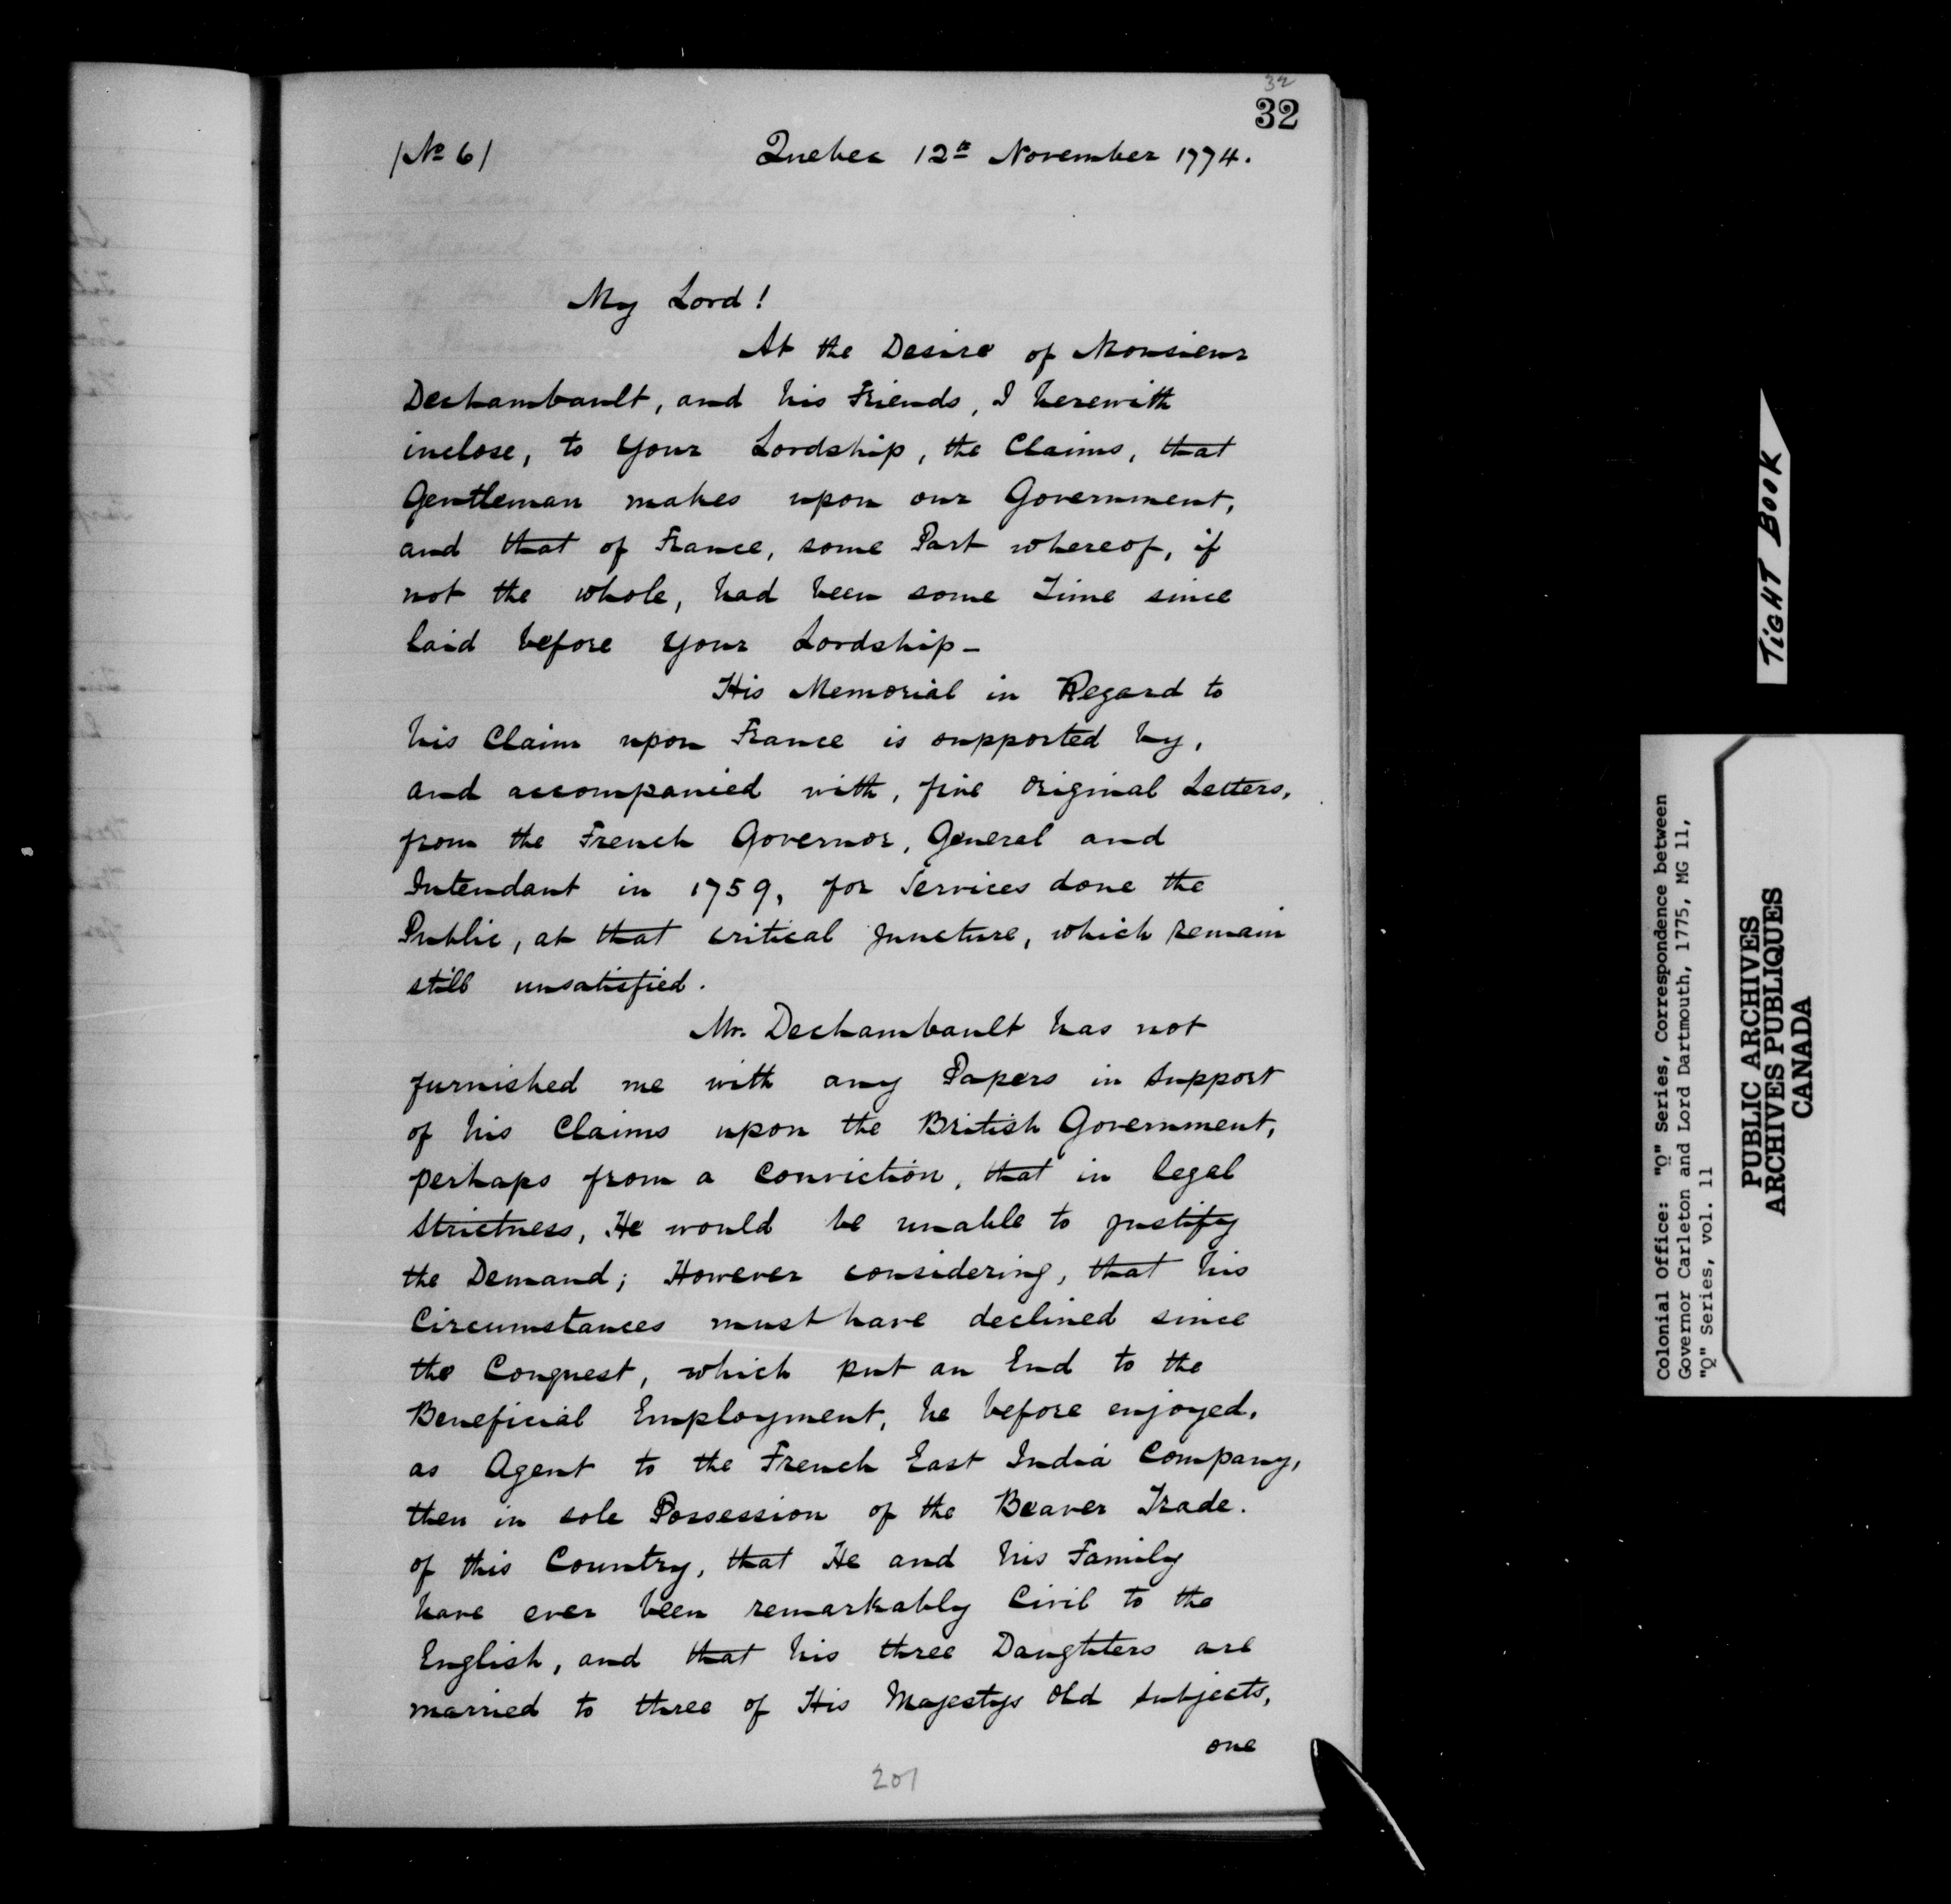 32
32
/No 6/ Quebec 12th November 1774.
My Lord!
At the Desire of Monsieur
Deschambault, and his Friends, I herewith
inclose, to Your Lordship, the Claims, that
Gentleman makes upon our Government,
and that of France, some Part whereof, if
not the whole, had been some Time since
laid before Your Lordship—
His Memorial in Regard to
his Claim upon France is supported by,
and accompanied with, five original Letters,
from the French Governor, General and
Intendant in 1759, for Services done the
Public, at that critical juncture, which remain
still unsatisfied.
Mr. Deschambault has not
furnished me with any Papers in support
of his Claims upon the British Government,
perhaps from a Conviction, that in legal
Strictness, He would be unable to justify
the Demand; However considering, that his
Circumstances must have declined since
the Conquest, which put an End to the
Beneficial Employment, he before enjoyed,
as Agent to the French East India Company,
then in sole Possession of the Beaver Trade.
of this Country, that He and his Family
have ever been remarkably Civil to the
English, and that his three Daughters are
married to three of His Majestys Old Subjects,
one
201
TIGHT BOOK
Colonial Office: "Q" Series, Correspondence between
Governor Carleton and Lord Dartmouth, 1775, MG 11,
"Q" Series, vol. 11
PUBLIC ARCHIVES
ARCHIVES PUBLIQUES
CANADA